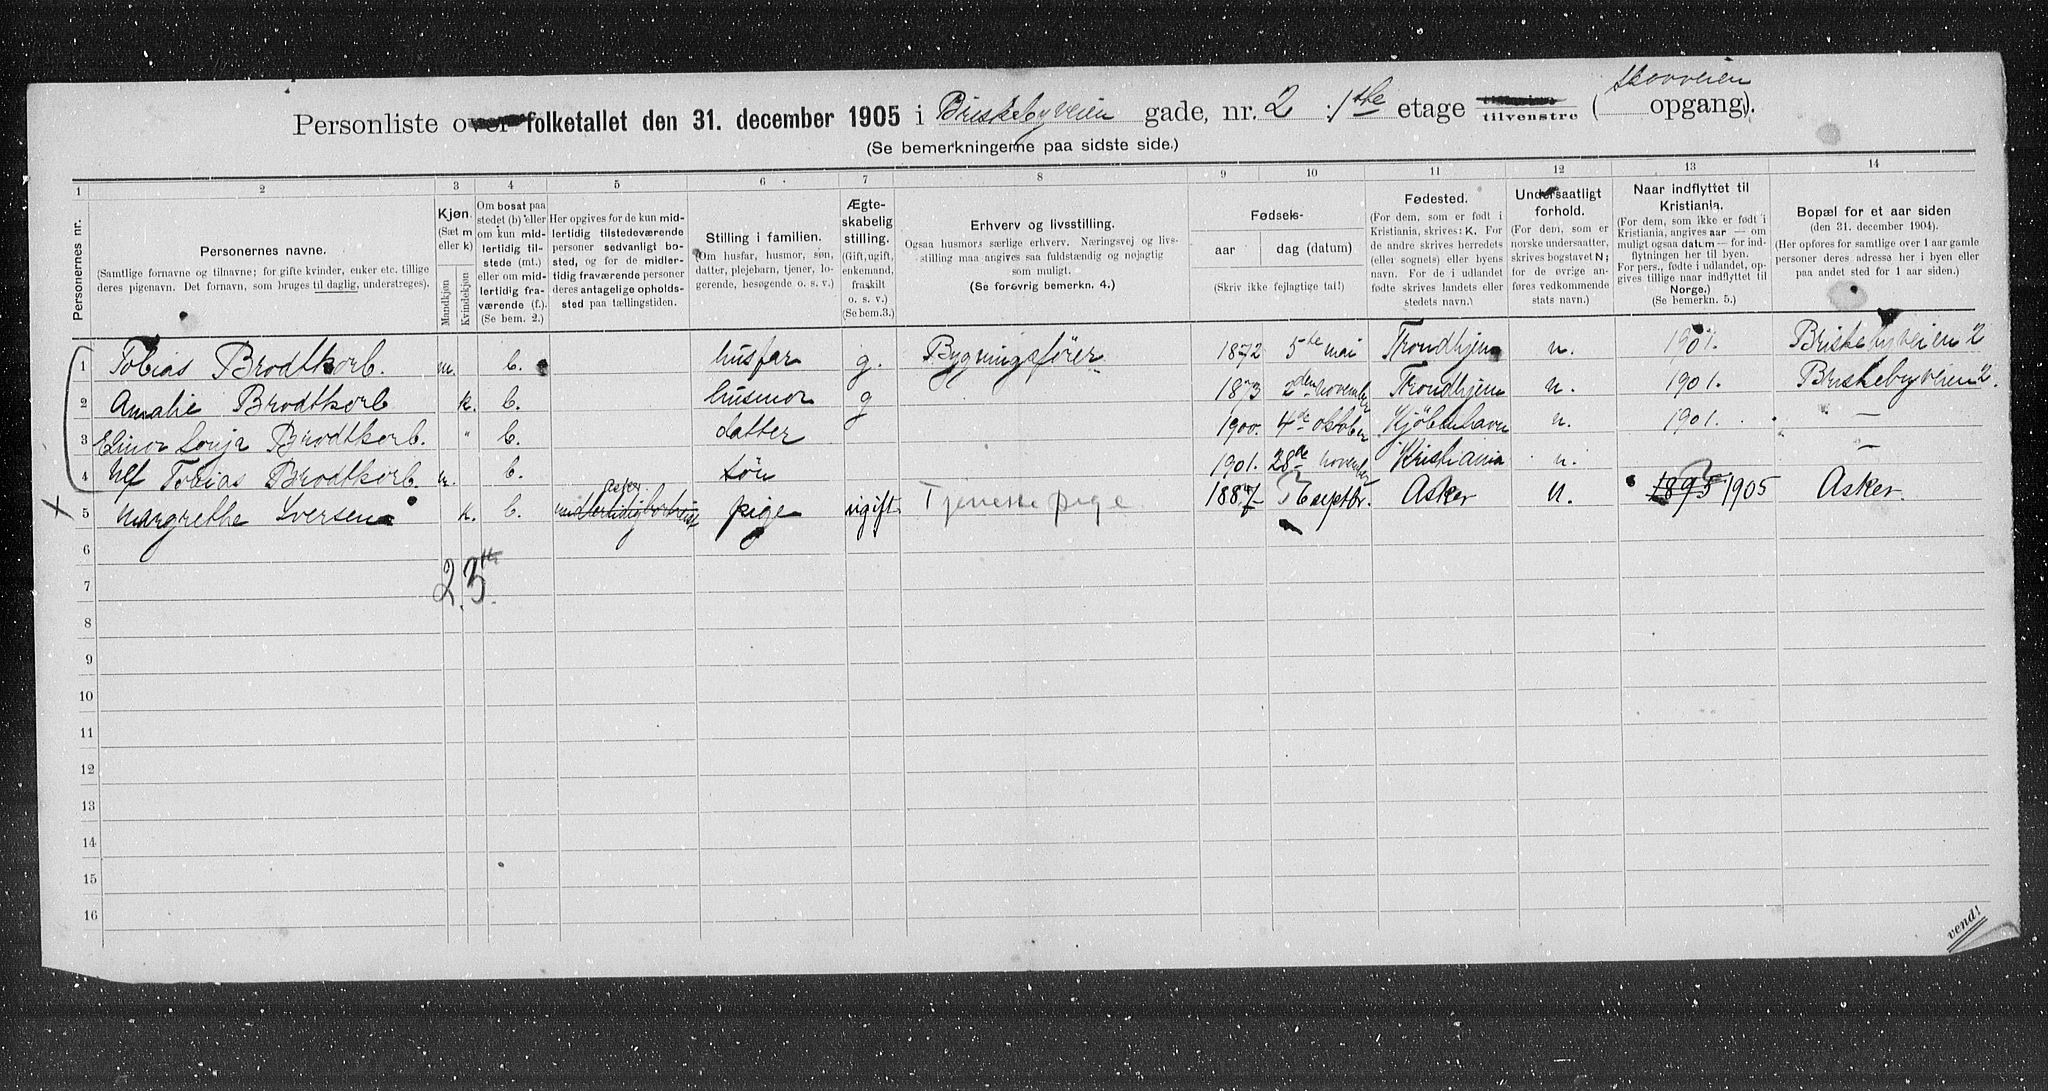 Skovveien
Personliste over folketallet den 31. december 1905 i Briskebyveien gade, nr. 2 : 1ste etage tilvenstre ( opgang).
(Se bemerkningerne paa sidste side.)
1 2 3 4 5 6 7 8 9 10 11 12 13 14
Personernes nr.
Personernes navne.
(Samtlige fornavne og tilnavne; for gifte kvinder, enker etc. tillige
deres pigenavn. Det fornavn, som bruges til daglig, understreges).
Kjøn.
(Sæt m
eller k)
Mandkjøn
Kvindekjøn
Om bosat paa
stedet (b) eller
om kun mid-
lertidig til-
stede (mt.)
eller om mid-
lertidig fra-
værende (f.).
(Se bem. 2.)
Her opgives for de kun mid-
lertidig tilstedeværende
personer sedvanligt bo-
sted, og for de midler-
tidig fraværende personer
deres antagelige opholds-
sted paa tællingstiden.
Stilling i familien.
(Om husfar, husmor, søn,
datter, plejebarn, tjener, lo-
gerende, besøgende o. s. v.)
Ægte-
skabelig
stilling.
(Gift, ugift,
enkemand,
fraskilt
o. s. v.)
(Se bem. 3.)
Erhverv og livsstilling.
Ogsaa husmors særlige erhverv. Næringsvej og livs-
stilling maa angives saa fuldstændig og nøjagtig
som muligt.
(Se forøvrig bemerkn. 4.)
Fødsels-
aar dag (datum)
(Skriv ikke fejlagtige tal!)
Fødested.
(For dem, som er født i
Kristiania, skrives: K. For
de andre skrives herredets
(eller sognets) eller byens
navn. For de i udlandet
fødte skrives landets eller
stedets navn.)
Undersaatligt
forhold.
(For dem, som er
norske undersaatter,
skrives bogstavet N;
for de øvrige an-
føres vedkommende
stats navn.)
Naar indflyttet til
Kristiania.
(For dem, som ikke er født i
Kristiania, angives aar — om
muligt ogsaa datum — for ind-
flytningen her til byen.
For pers., fødte i udlandet, op-
gives tillige naar indflyttet til
Norge.)
(Se bemerkn. 5.)
Bopæl for et aar siden
(den 31. december 1904).
(Her opføres for samtlige over 1 aar gamle
personer deres adresse her i byen eller
paa andet sted for 1 aar siden.)
1 Tobias Brodtkorb. m. b. husfar g. Bygningsfører 1872 5te mai Trondhjem n. 1901. Briskebyveien 2
2 Amalie Brodtkorb k. b. husmor g 1873 2den november Trondhjem n. 1901. Briskebyveien 2.
3 Elinor Sonja Brodtkorb. " b. datter 1900. 4de oktober Kjøbenhavn n. 1901. " —
4 Ulf Tobias Brodtkorb. m. b. søn 1901. 28de november Kristiania n. —
X 5 Margrethe Iversen k. b. Asker midlertidig bortreist pige ugift Tjenestepige 1887 septbr. Asker N. 1893 1905 Asker.
6
23
7
8
9
10
11
12
13
14
15
16
vend!